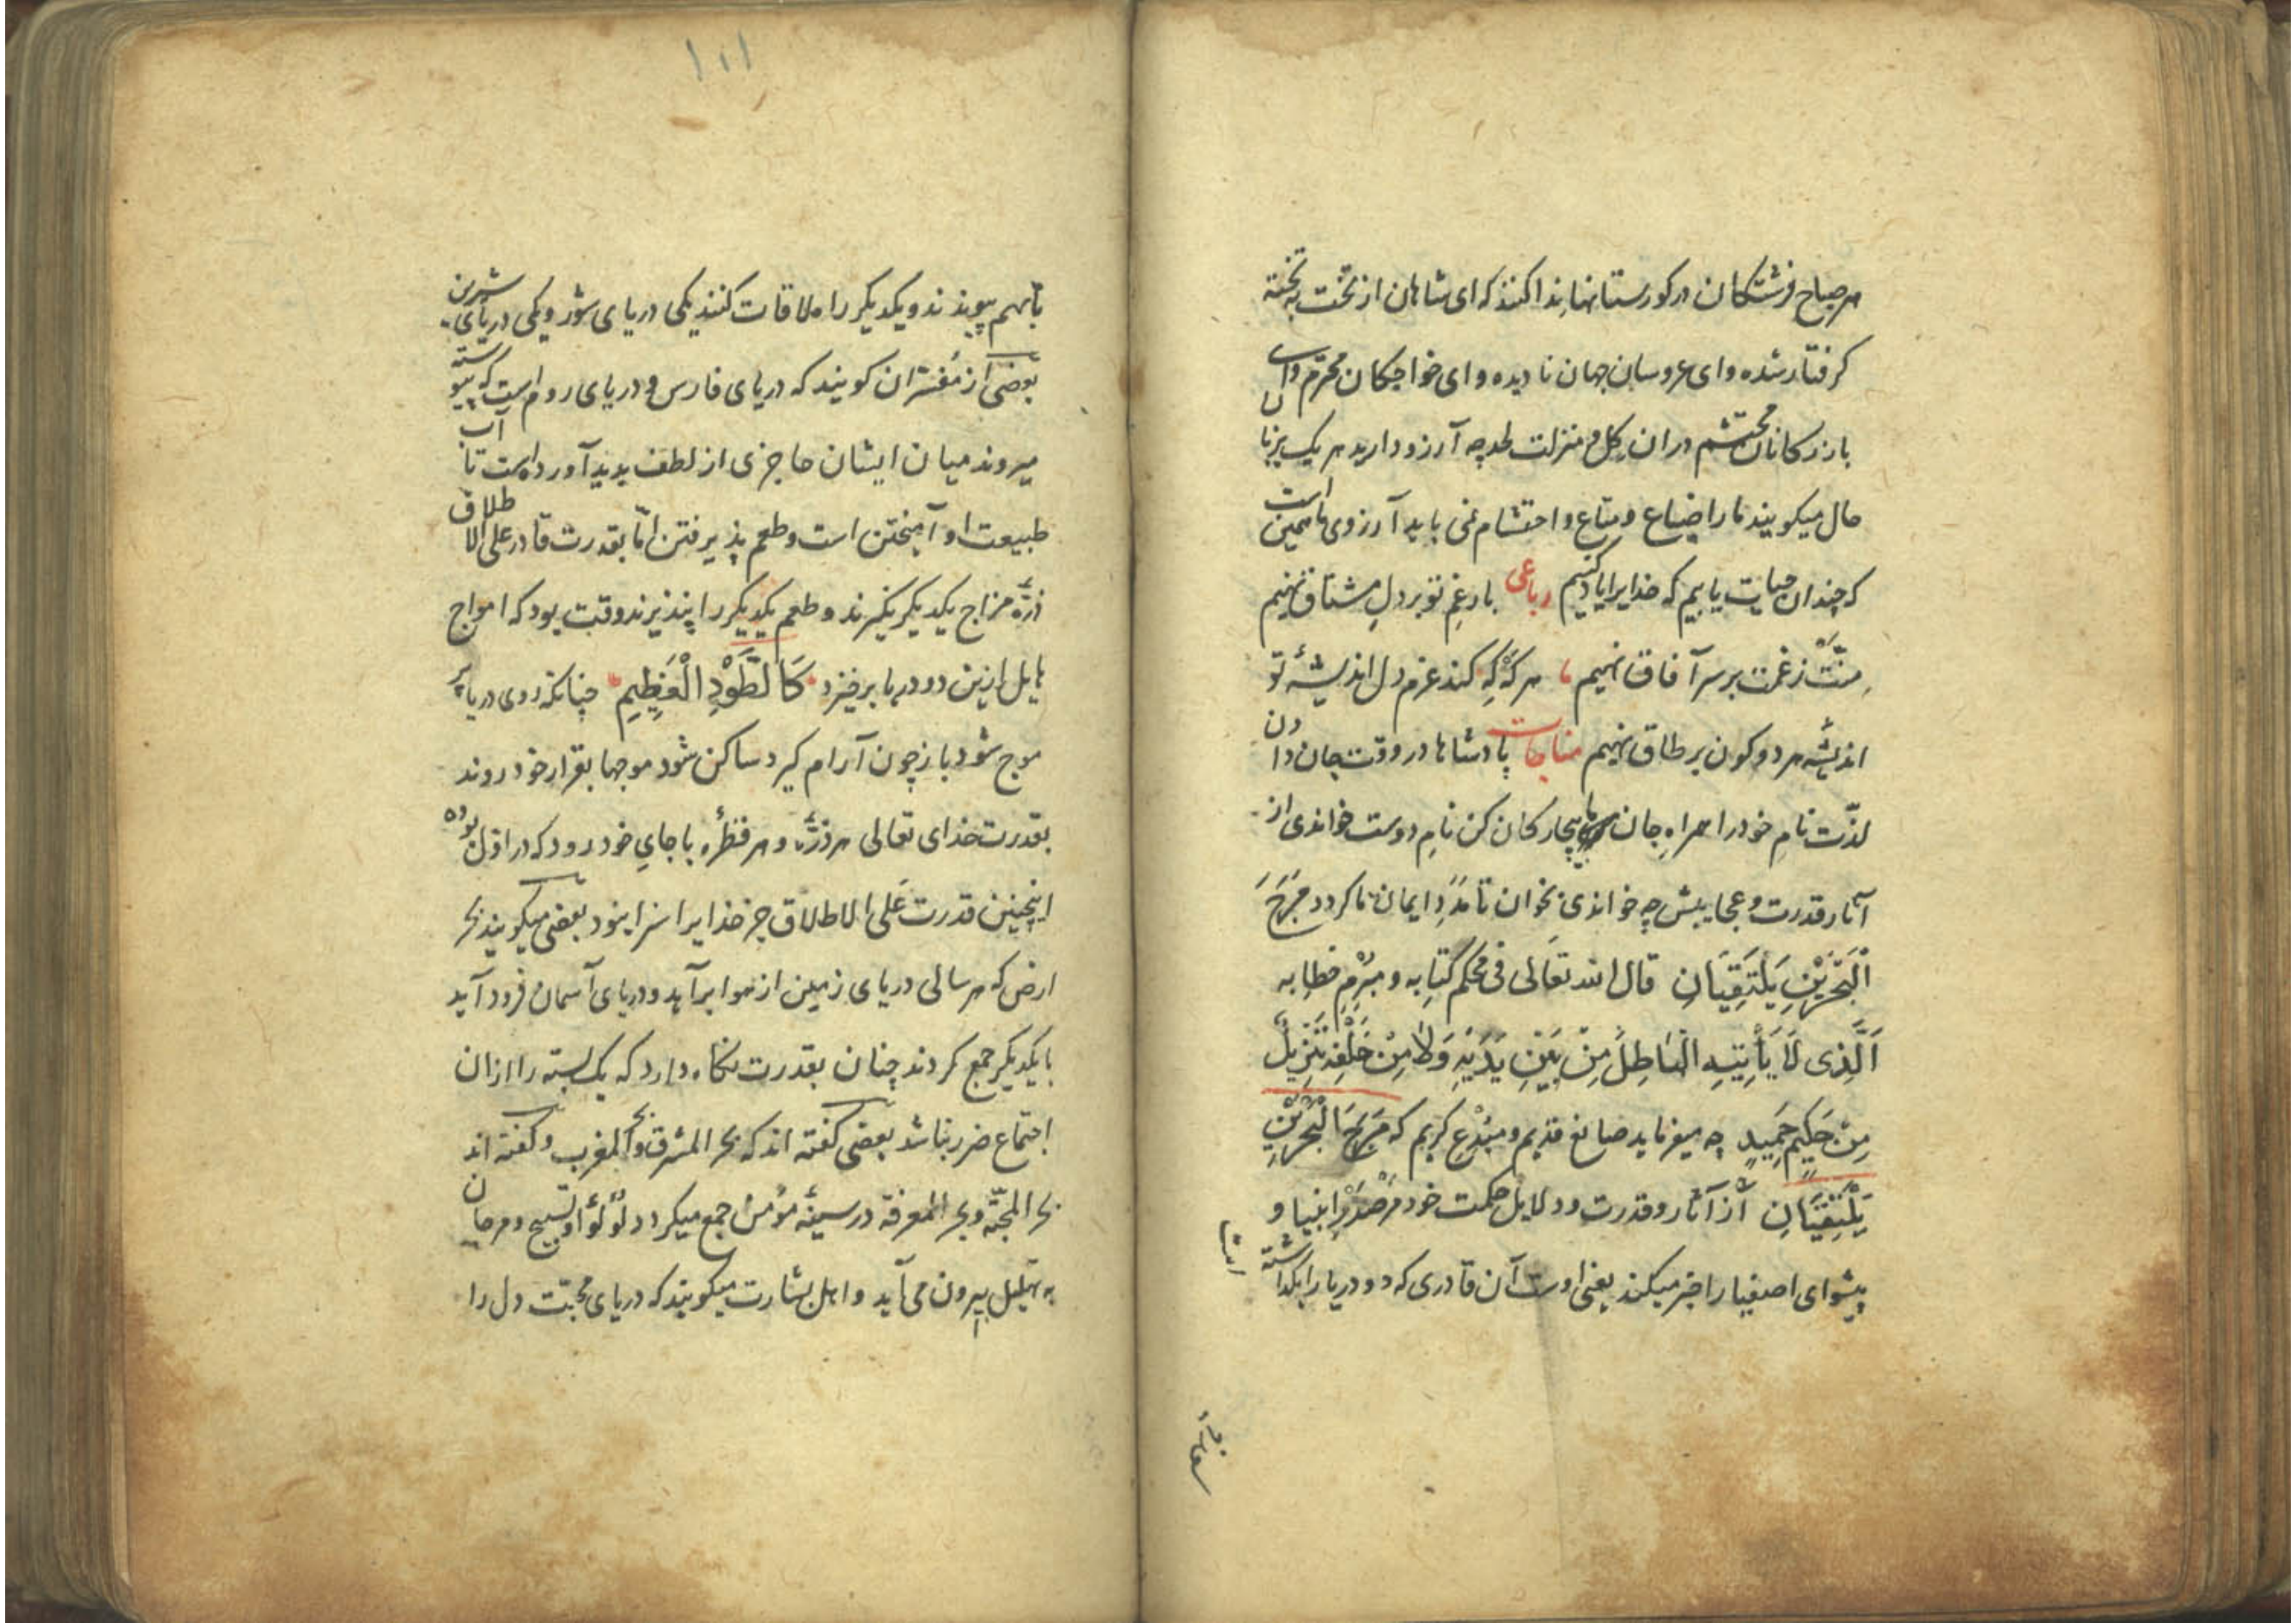 هر صباح فرشتکان در کورستانها ندا کنند که ای شاهان از تخت به تخته
کرفتار شده و ای عروسان جهان نادیده و ای خواجکان محترم و ای
بازرکانان محتشم در ان کل و منزلت لحد چه آرزو دارید هر یک بزبا
حال میکویند ما را ضیاع و متاع و احتشام نمی باید آرزوی ما همین است
که چندان حیات یابیم که خدایرا یاد کنیم رباعی بار غم تو بر دل مشتاق نهیم
منّت ز غمت بر سر آفاق نهیم هر که که کند عزم دل اندیشهٔ تو
اندیشه هر دو کون بر طاق نهیم مناجات پادشاها در وقت جان دادن
لذّت نام خود را همراهِ جان ما بیچارکان کن نامِ دوست خواندی از
آثار قدرت و عجایبش چه خواندی بخوان تا مددِ ایمان ما کردد مَرَجَ
الْبَحْرَیْنِ یَلْتَقِیَانِ قال الله تعَالی فی محکم کتابه و مبرم خطابه
اَلَّذِی لَا یَأْتِیهِ الْبَاطِلُ مِنْ بَیْنِ یَدَیْهِ وَلَا مِنْ خَلْفِهِ تَنْزِیلٌ
مِنْ حَکِیمٍ حَمِیدٍ چه میفرماید صانع قدیم و مبدع کریم که مَرَجَ الْبَحْرَیْنِ
یَلْتَقِیَانِ از آثار و قدرت و دلایل حکمت خود مر صدر انبیا و
پیشوای اصفیا را خبر میکند یعنی اوست آن قادری که دو دریا را بکداشته
۱۰۱
تا بهم پیوندند و یکدیکر را ملاقات کنند یکی دریای شور و یکی دریای شیرین
بعضی از مفسّران کویند که دریای فارس و دریای روم است که پیوسته
میروند میان ایشان حاجزی از لطف بدید آورده است تا آب
طبیعت او آمیختن است و طعم پذیرفتن امّا بقدرت قادر علی الاطلاق
ذرّهٔ مزاج یکدیکر نکیرند و طعم یکدیکر را نپذیرند وقت بود که امواج
هایل ازین دو دریا برخیزد کَالطَّوْدِ الْعَظِیمِ چنانکه روی دریا پر
موج شود باز چون آرام کیرد ساکن شود موجها بقرار خود روند
بقدرت خدای تعالی هر ذرّهٔ و هر قطرهٔ با جای خود رود که در اول بوده
اینچنین قدرت عَلی الاطلاق جز خدایرا سزا نبود بعضی میکویند بحر
ارض که هر سالی دریای زمین از هوا برآید و دریای آسمان فرود آید
با یکدیکر جمع کردند چنان بقدرت نکاه دارد که یک بسته را از ان
اجتماع ضرر نباشد بعضی کفته اند که بحر المشرق و بحر المغرب و کفته اند
بحر المحبّة و بحر المعرفة در سینهٔ مؤمن جمع میکردد لؤلؤ او تسبیح و مرجان
به تهلیل بیرون می آید و اهل بشارت میکویند که دریای محبّت دل را